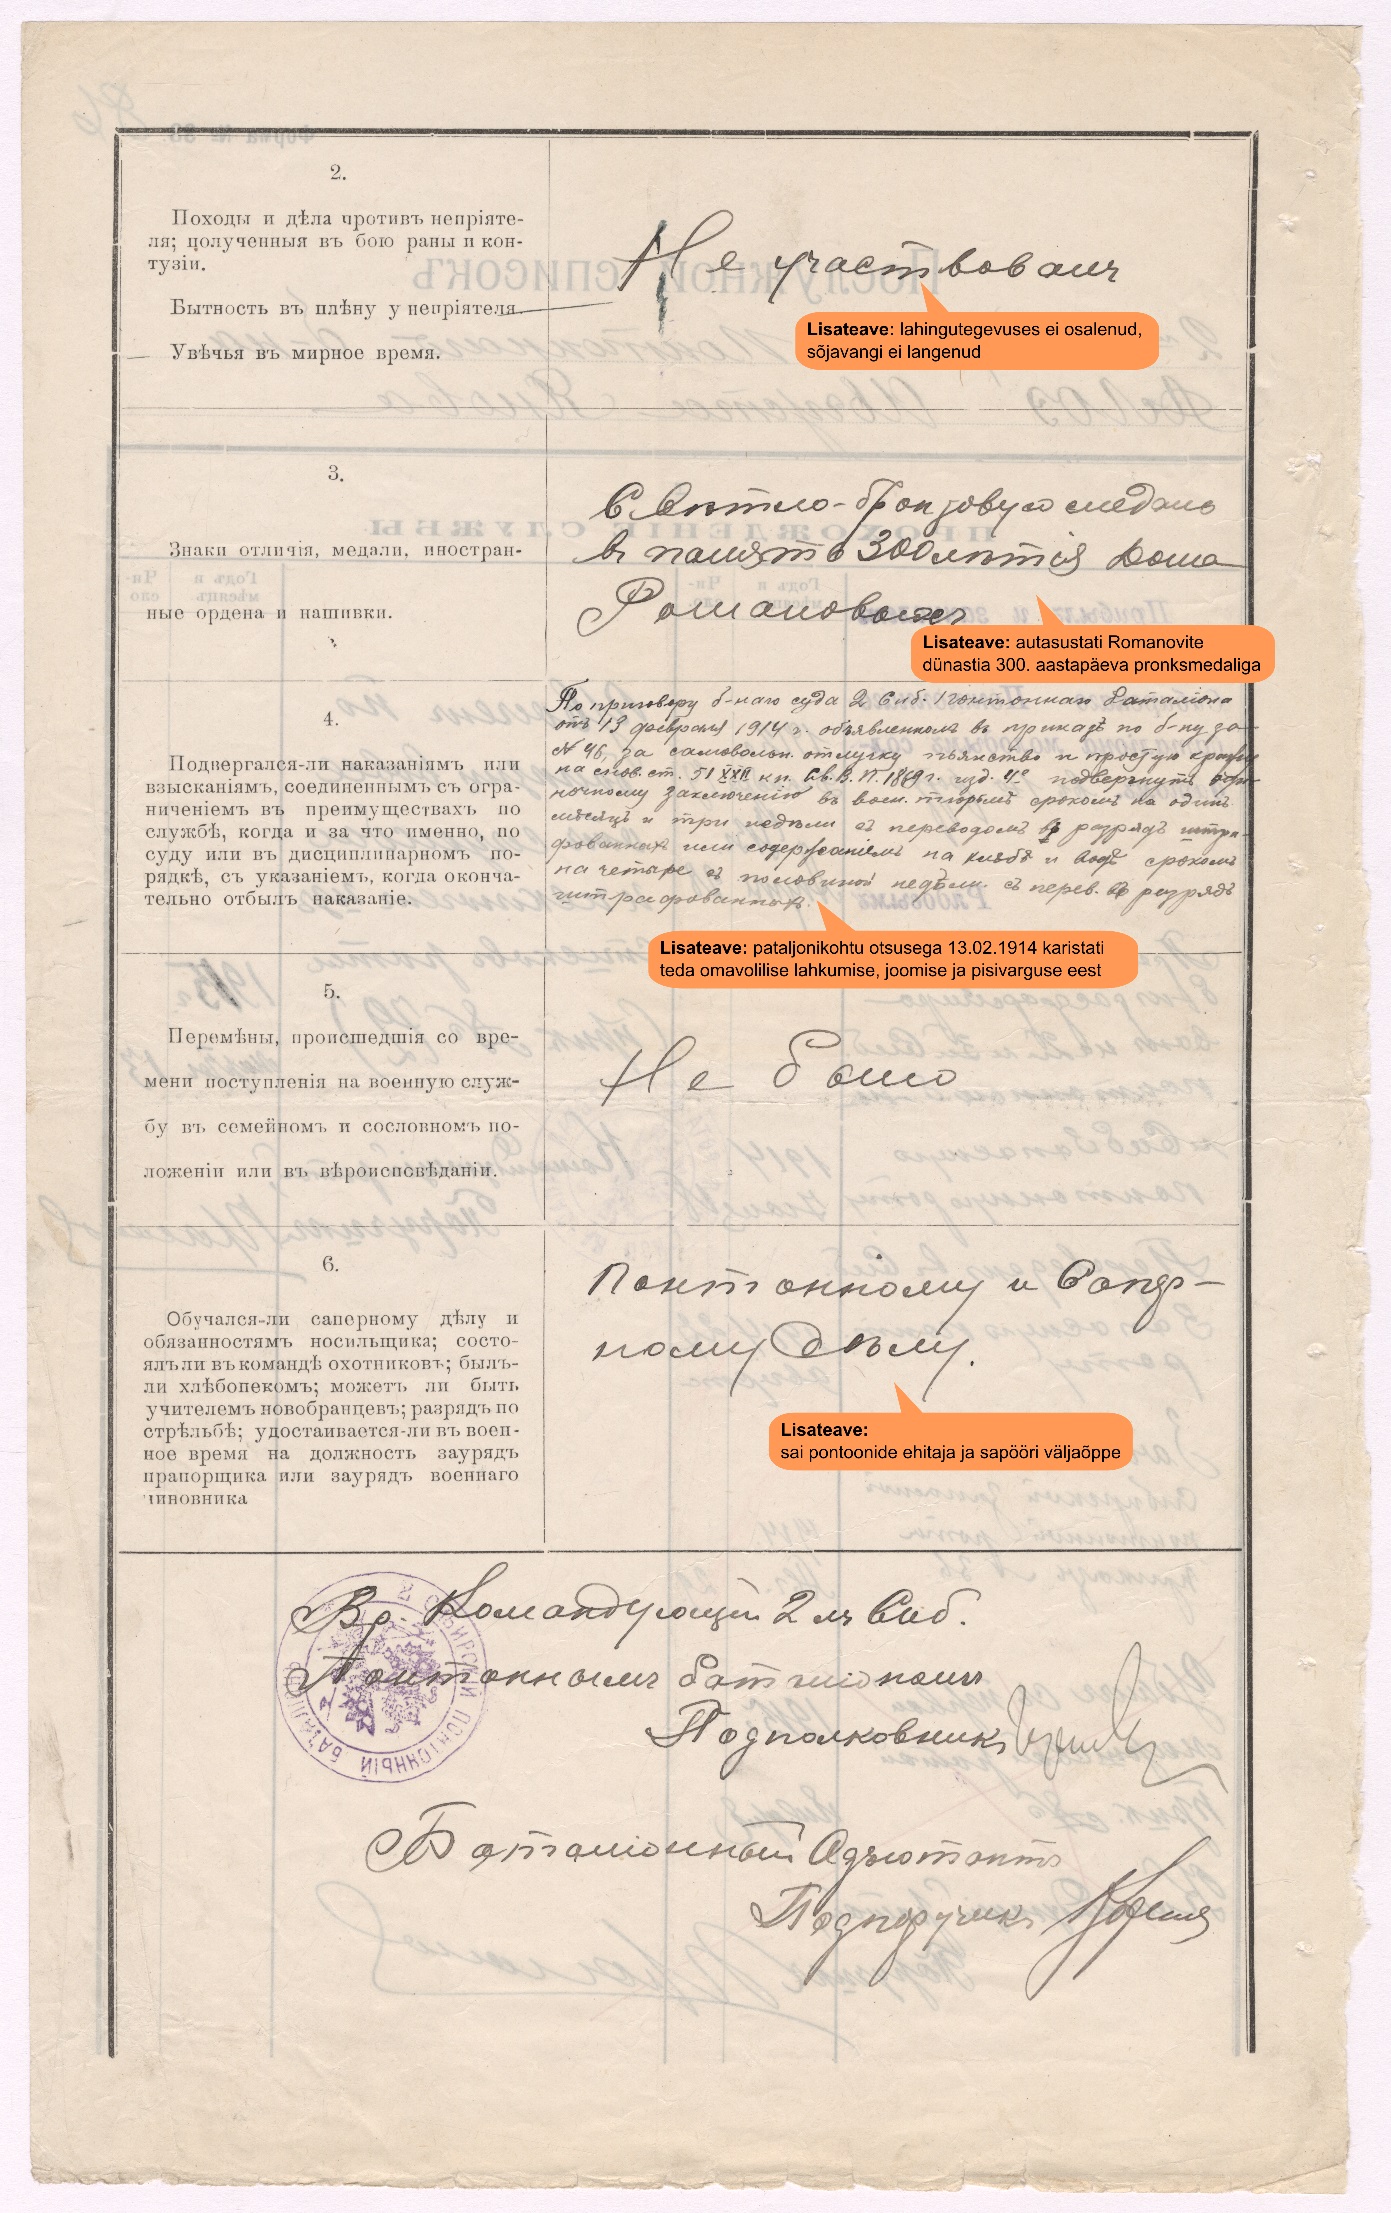 2.
Походы и дѣла противъ непріяте-
ля; полученныя въ бою раны и кон-
тузіи.
Бытность въ плѣну у непріятеля.
Увѣчья въ мирное время.
Не участвовалъ
Lisateave: lahingutegevuses ei osalenud,
sõjavangi ei langenud
3.
Знаки отличія, медали, иностран-
ные ордена и нашивки.
Свѣтло-бронзовую медаль
въ память 300лѣтія Дома
Романовыхъ
Lisateave: autasustati Romanovite
dünastia 300. aastapäeva pronksmedaliga
4.
Подвергался-ли наказаніямъ или
взысканіямъ, соединеннымъ съ огра-
ниченіемъ въ преимуществахъ по
службѣ, когда и за что именно, по
суду или въ дисциплинарномъ по-
рядкѣ, съ указаніемъ, когда оконча-
тельно отбылъ наказаніе.
По приговору б-наго суда 2 Сиб. Понтоннаго баталіона
отъ 13 февраля 1914 г. объявленномъ въ приказѣ по б-ну за
№ 46, за самовольн. отлучку пьянство и простую кражу
на основ. ст. 51 XXII кн. Св. В. П. 1869 г. изд. 4е подвергнутъ оди-
ночному заключенію въ воен. тюрьмѣ срокомъ на одинъ
мѣсяцъ и три недѣли съ переводомъ въ разрядъ штра-
фованныхъ или содержаніемъ на хлѣбѣ и водѣ срокомъ
на четыре съ половиной недѣли съ перев. въ разрядъ
штрафованныхъ.
Lisateave: pataljonikohtu otsusega 13.02.1914 karistati
teda omavolilise lahkumise, joomise ja pisivarguse eest
5.
Перемѣны, происшедшія со вре-
мени поступленія на военную служ-
бу въ семейномъ и сословномъ по-
ложеніи или въ вѣроисповѣданіи.
Не было
6.
Обучался-ли саперному дѣлу и
обязанностямъ носильщика; состо-
ялъ ли въ командѣ охотниковъ; былъ-
ли хлѣбопекомъ; можетъ ли быть
учителемъ новобранцевъ; разрядъ по
стрѣльбѣ; удостаивается-ли въ воен-
ное время на должность зауряд-
прапорщика или заурядъ военнаго
чиновника
Понтонному и Сапер-
ному дѣлу.
Lisateave:
sai pontoonide ehitaja ja sapööri väljaõppe
Вр. Командующій 2 мъ Сиб.
Понтоннымъ баталіономъ
Подполковникъ
Баталіонный Адъютантъ
Подпоручикъ
СИБИРСКІЙ ПОНТОННЫЙ БАТАЛІОНЪ